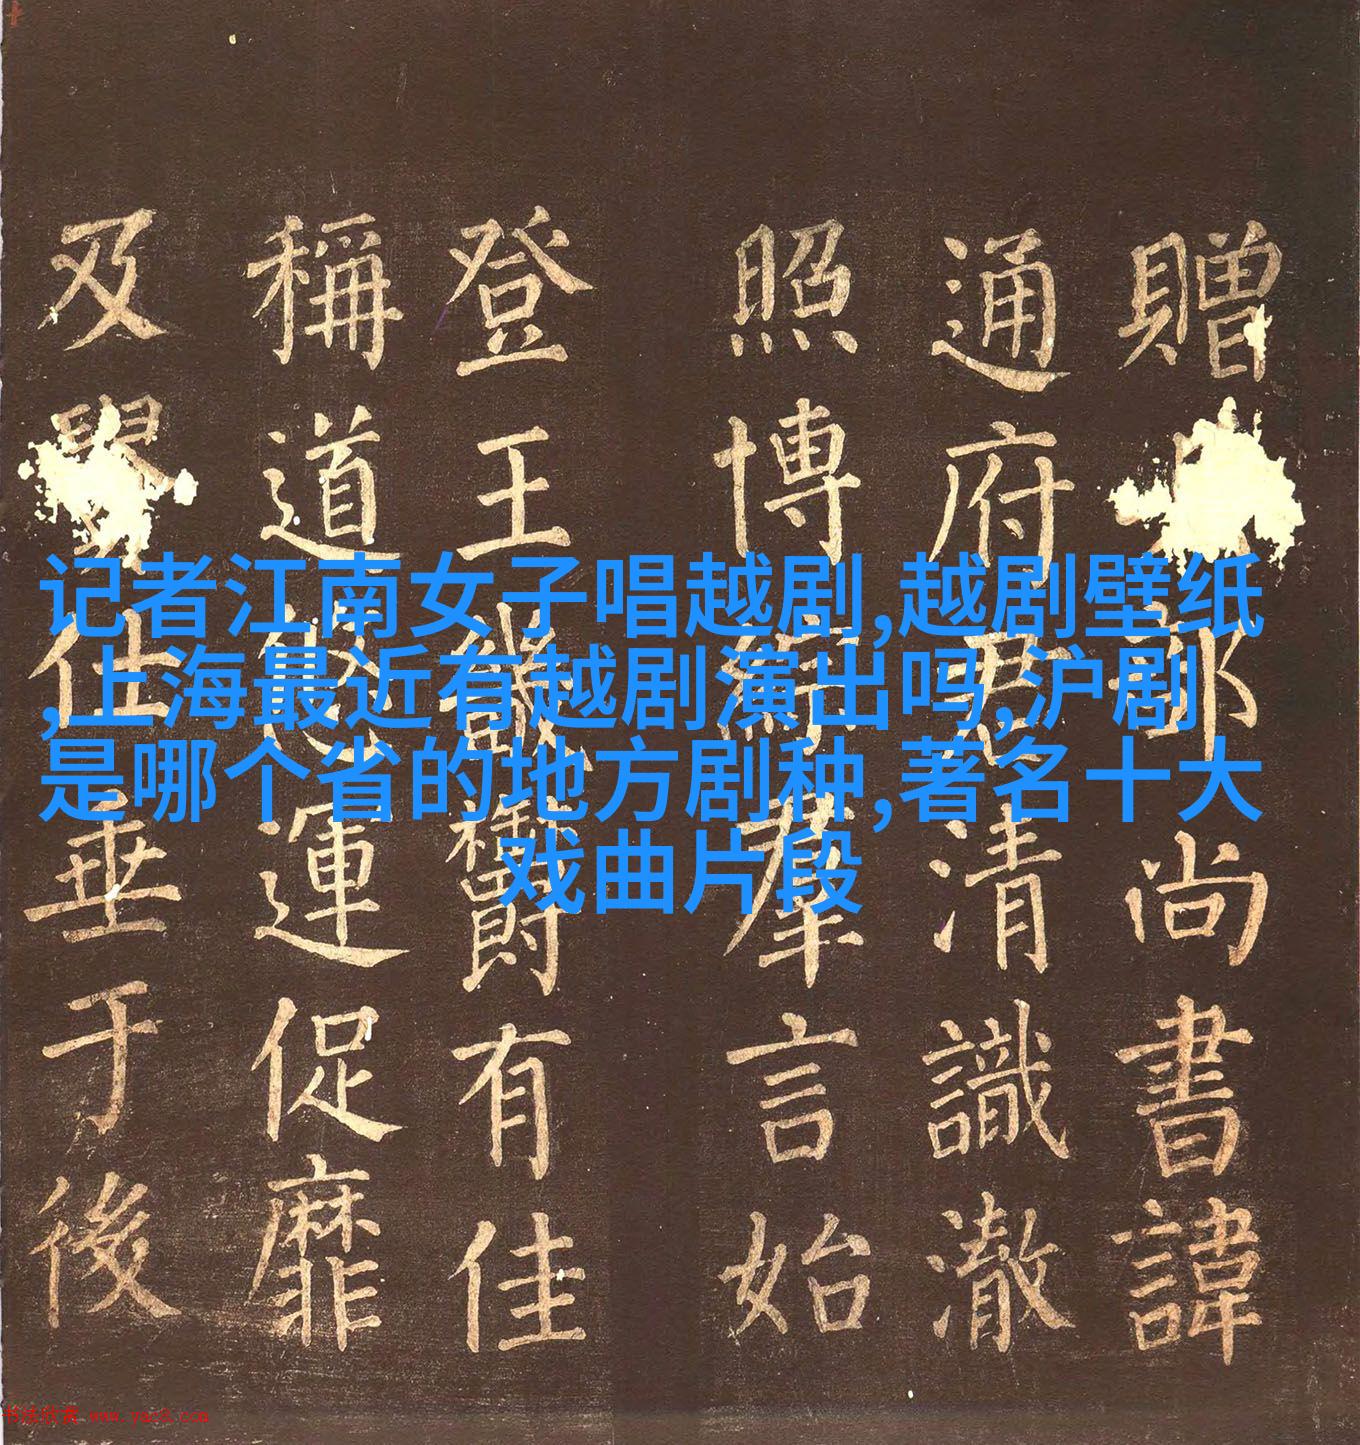 记者江南女子唱越剧,越剧壁纸
,上海最近有越剧演出吗,沪剧
是哪个省的地方剧种,著名十大
戏曲片段
贈部尚書諱
通府君清識澈
照博綜羣言始
登王畿爵有佳
稱道悠運促靡
及仕垂于後
书法欣赏 www.yac8.com